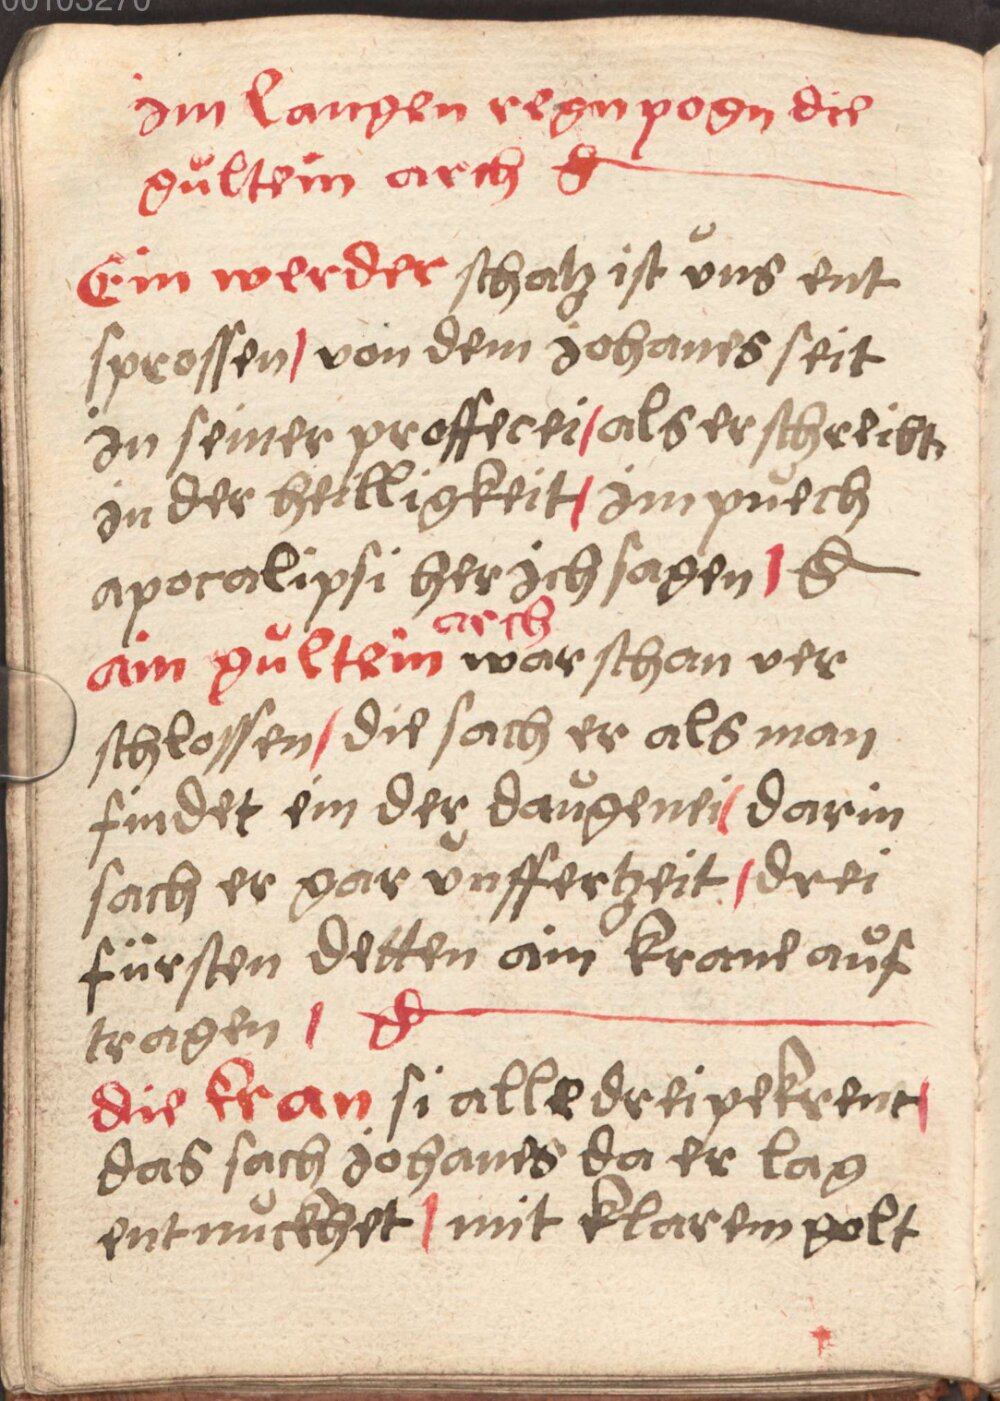 00103270
im langen regnpogn die
gůltein arch
Ein werder schatz ist ŭns ent
sprossen / von dem johanes seit
in seiner proffecei / als er schreibt
in der heilligkeit / im pŭech
apocalipsi her ich sagen /
ain gŭltein arch war schan ver
schlossen / die sach er als man
findet ein der daŭgenei / darin
sach er gar ŭnffertzeit / drei
fürsten detten ain krane aůf
tragen /
die kran si alle drei pekrent /
das sach johanes da er lag
entnŭckhet / mit klarem golt